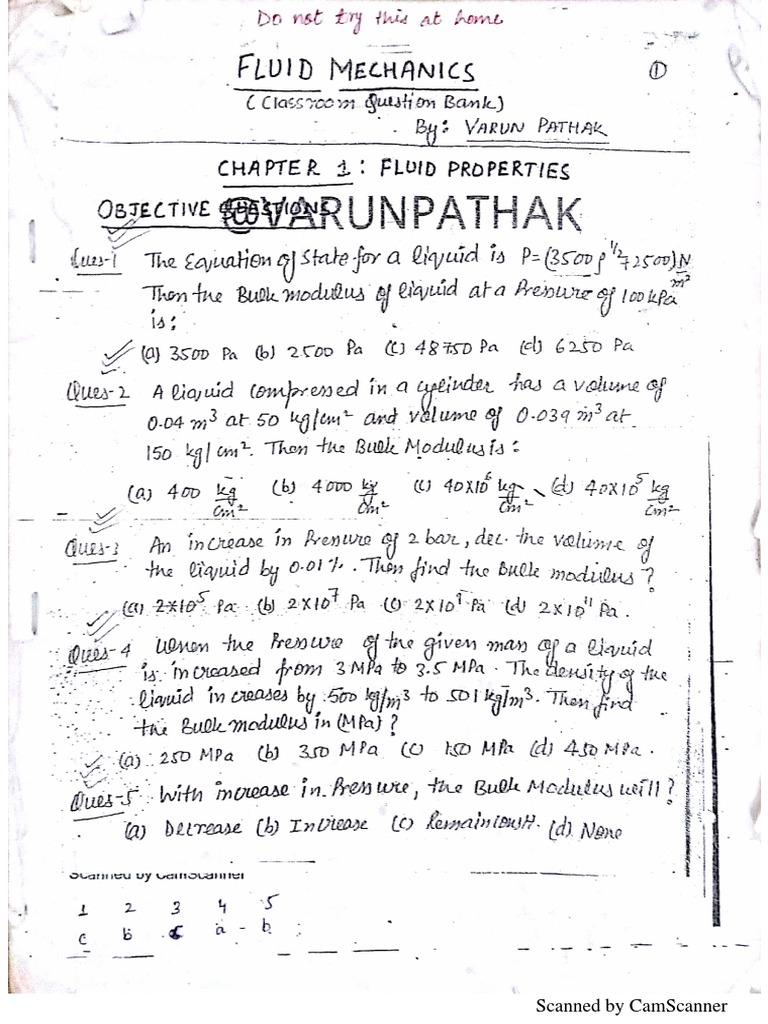 Do not try this at home
FLUID MECHANICS
①
(Classroom Question Bank)
By: VARUN PATHAK
CHAPTER 1: FLUID PROPERTIES
OBJECTIVE QUESTIONS
@VARUNPATHAK
Ques-1 The Equation of State for a liquid is P=(3500 ρ^1/2+2500) N/m²
Then the Bulk modulus of liquid at a Pressure of 100 kPa
is:
(a) 3500 Pa (b) 2500 Pa (c) 48750 Pa (d) 6250 Pa
Ques-2 A liquid compressed in a cylinder has a volume of
0.04 m³ at 50 kg/cm² and volume of 0.039 m³ at
150 kg/cm². Then the Bulk Modulus is:
(a) 400 kg/cm² (b) 4000 kg/cm² (c) 40×10⁶ kg/cm² (d) 40×10⁵ kg/cm²
Ques-3 An increase in Pressure of 2 bar, dec. the volume of
the liquid by 0.01%. Then find the Bulk modulus?
(a) 2×10⁵ Pa (b) 2×10⁷ Pa (c) 2×10⁹ Pa (d) 2×10¹¹ Pa.
Ques-4 When the Pressure of the given mass of a liquid
is increased from 3 MPa to 3.5 MPa. The density of the
liquid increases by 500 kg/m³ to 501 kg/m³. Then find
the Bulk modulus in (MPa)?
(a) 250 MPa (b) 350 MPa (c) 150 MPa (d) 450 MPa.
Ques-5 With increase in Pressure, the Bulk Modulus will?
(a) Decrease (b) Increase (c) Remain const. (d) None
Scanned by CamScanner
1 2 3 4 5
c b c a - b
Scanned by CamScanner